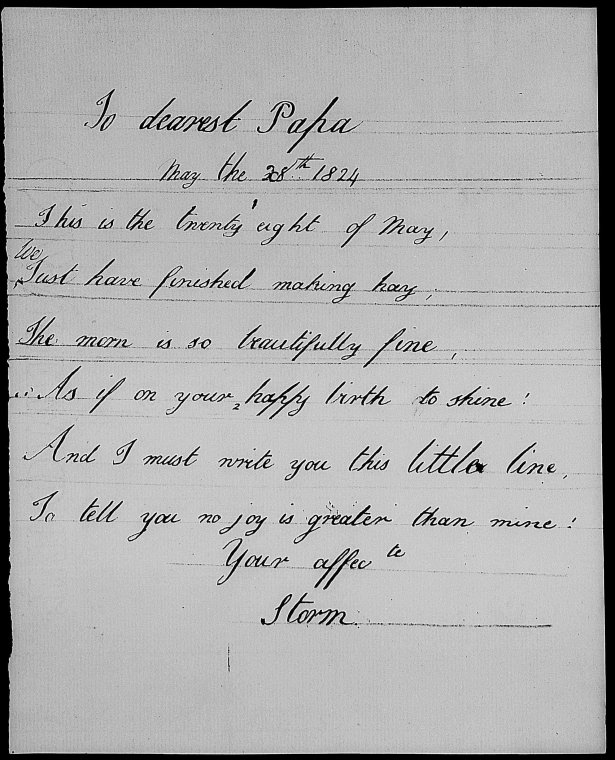 To dearest Papa
May the 28th 1824
This is the twenty eight of May,
We
Just have finished making hay,
The morn is so beautifully fine,
As if on your happy birth to shine!
And I must write you this little line,
To tell you no joy is greater than mine!
Your affec te
Storm